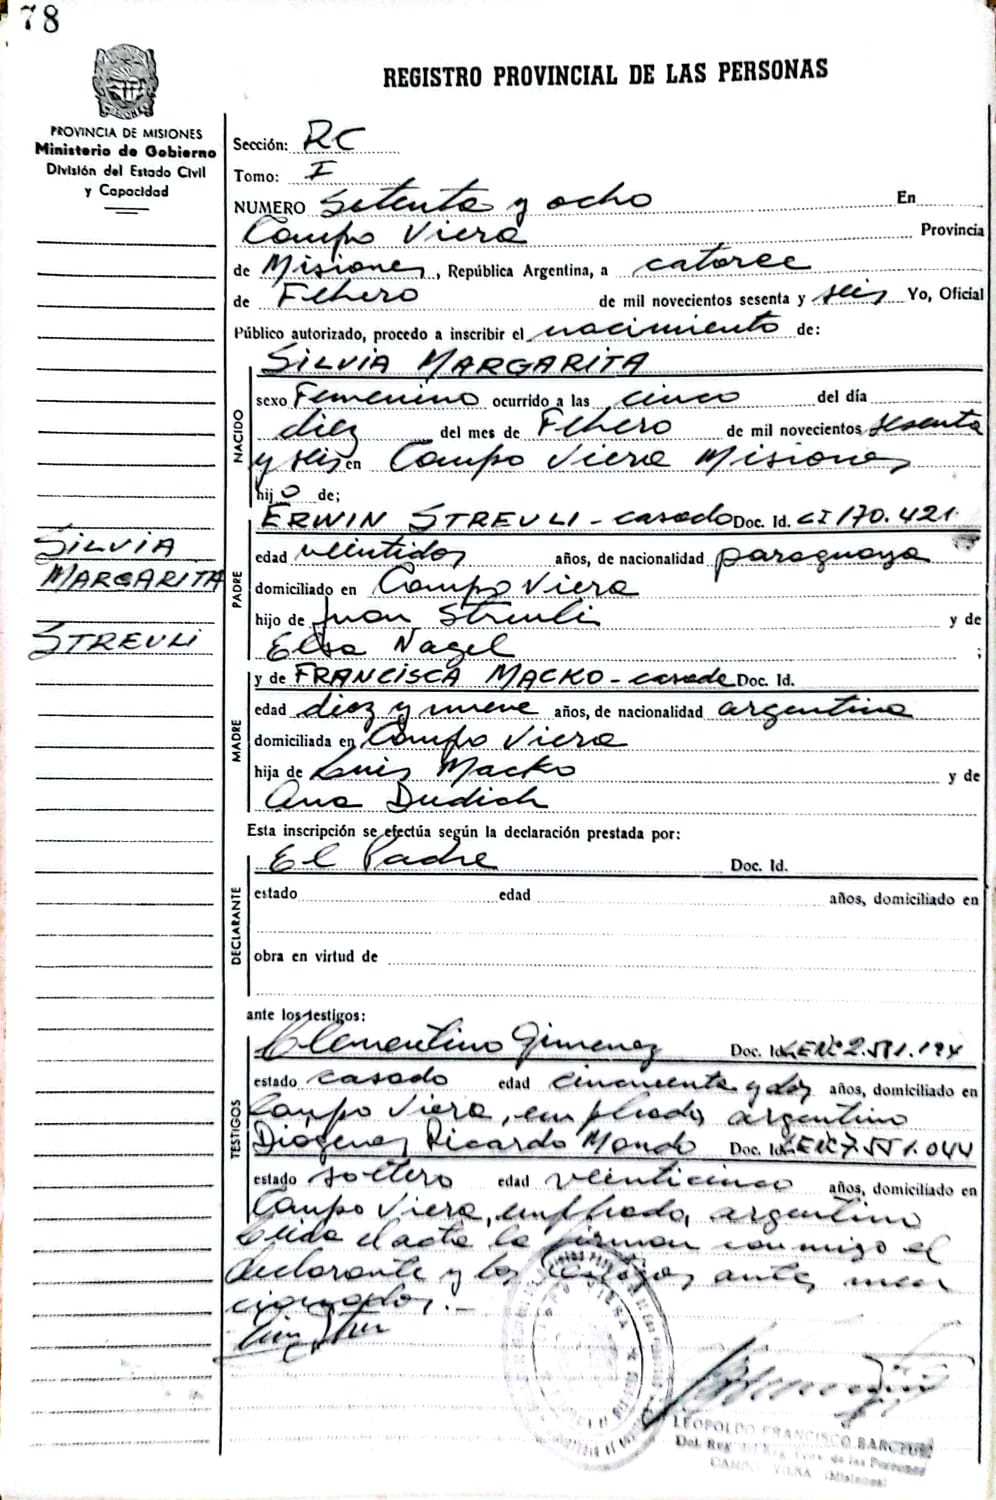 78
REGISTRO PROVINCIAL DE LAS PERSONAS
PROVINCIA DE MISIONES
Ministerio de Gobierno
División del Estado Civil
y Capacidad
Sección: RC
Tomo: I
NUMERO Setenta y ocho En
Campo Viera Provincia
de Misiones, República Argentina, a catorce
de Febrero de mil novecientos sesenta y seis Yo, Oficial
Público autorizado, procedo a inscribir el nacimiento de:
NACIDO
SILVIA MARGARITA
sexo Femenino ocurrido a las cinco del día
diez del mes de Febrero de mil novecientos sesenta
y seis en Campo Viera Misiones
hij o de;
SILVIA
MARGARITA
STREULI
PADRE
ERWIN STREULI - casado Doc. Id. CI 170.421
edad veintidos años, de nacionalidad paraguaya
domiciliado en Campo Viera
hijo de Juan Streuli y de
Elsa Nagel ;
MADRE
y de FRANCISCA MACKO - casada Doc. Id.
edad diez y nueve años, de nacionalidad argentina
domiciliada en Campo Viera
hija de Luis Macko y de
Ana Dudich
Esta inscripción se efectúa según la declaración prestada por:
DECLARANTE
El Padre Doc. Id.
estado edad años, domiciliado en
obra en virtud de
ante los testigos:
TESTIGOS
Clementino Gimenez Doc. Id. LENº2.581.194
estado casado edad cincuenta y dos años, domiciliado en
Campo Viera, empleado, argentino
Diógenes Ricardo Mondo Doc. Id. LENº7.551.044
estado soltero edad veinticinco años, domiciliado en
Campo Viera, empleado, argentino
Leida el acta la firman conmigo el
declarante y los testigos antes men
cionados.-
LEOPOLDO FRANCISCO
CAMPO VIERA (Misiones)